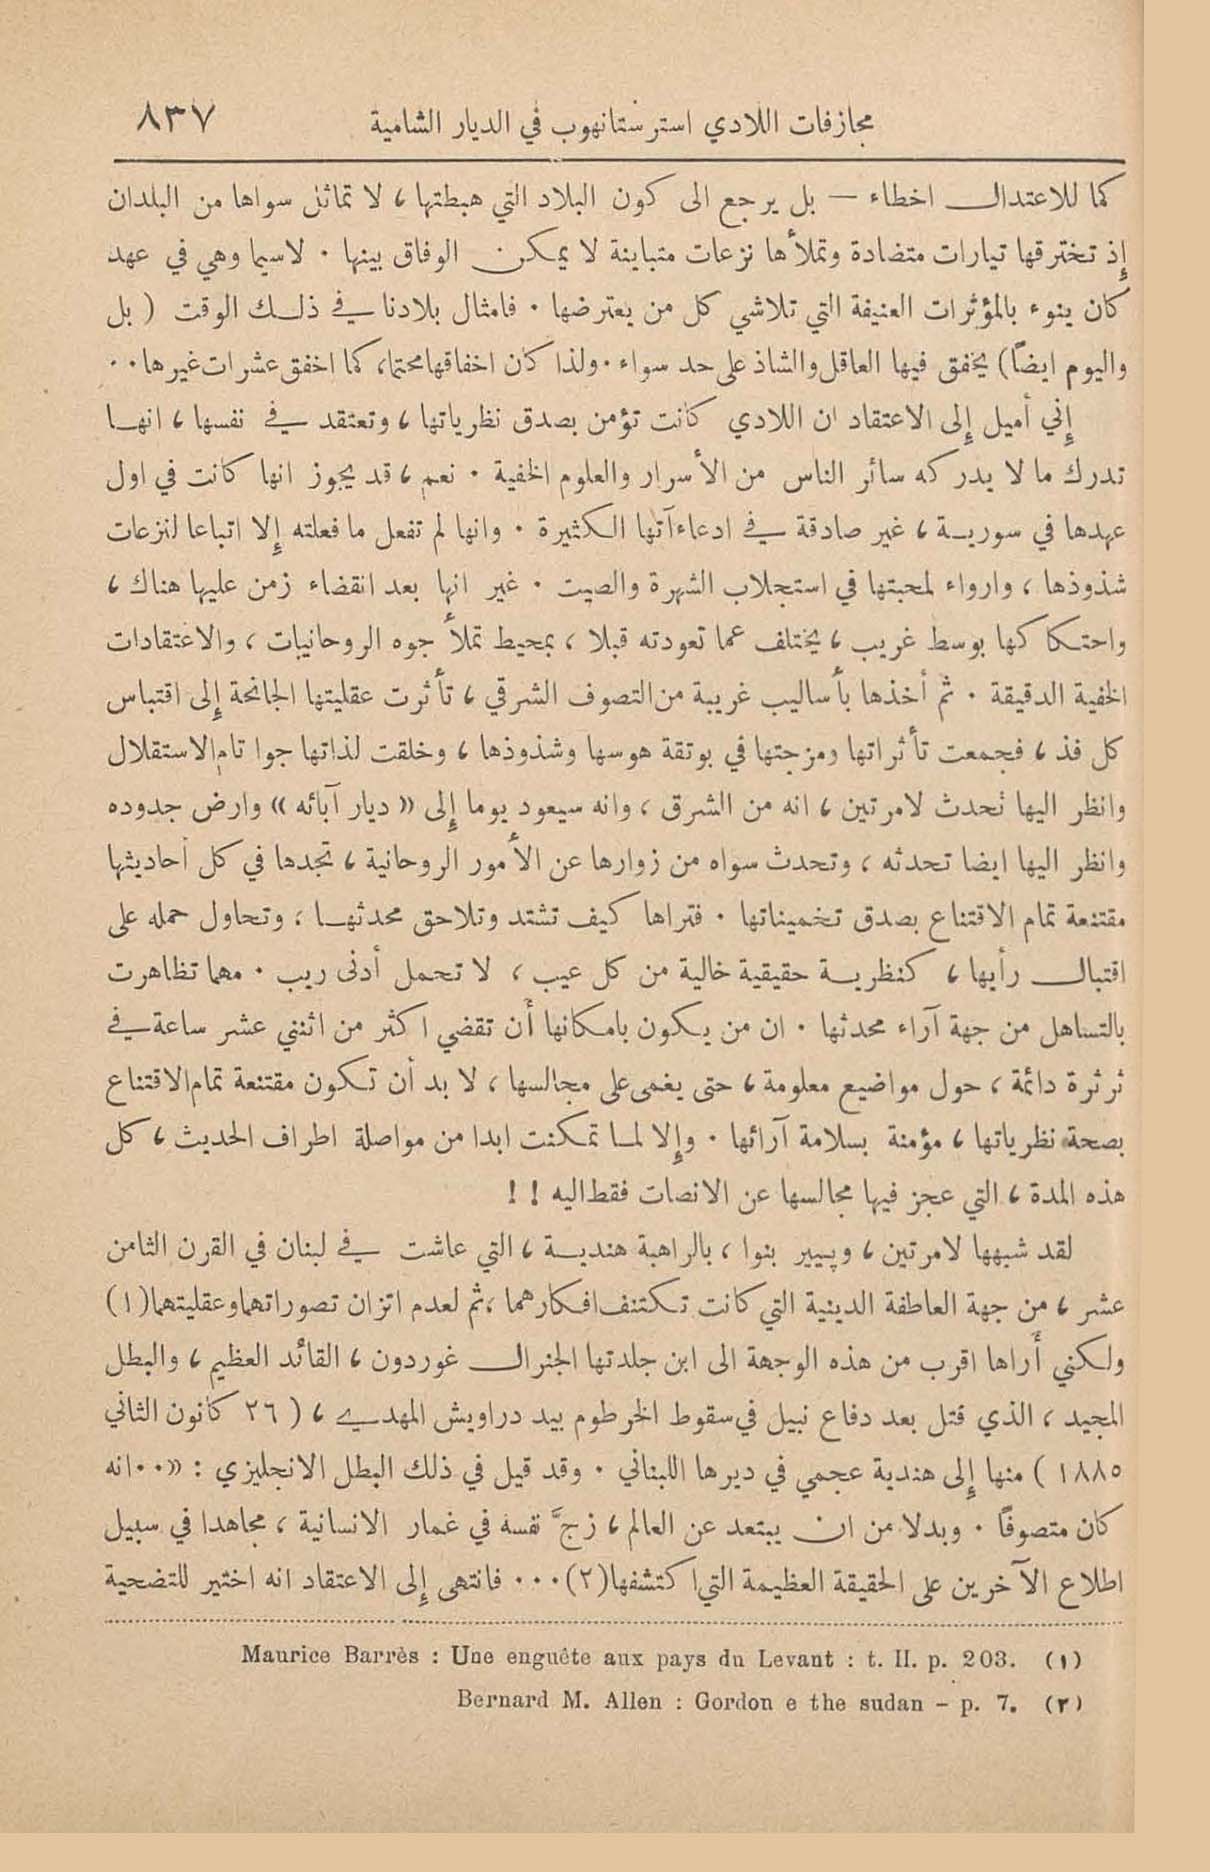 مجازفات اللادي استر ستانهوب في الديار الشامية ٨٣٧
كما للاعتدال اخطاء — بل يرجع الى كون البلاد التي هبطتها ، لا تماثل سواها من البلدان
إذ تخترقها تيارات متضادة وتملأها نزعات متباينة لا يمكن الوفاق بينها . لاسيما وهي في عهد
كان ينوء بالمؤثرات العنيفة التي تلاشي كل من يعترضها . فامثال بلادنا في ذلك الوقت ( بل
واليوم ايضاً ) يخفق فيها العاقل والشاذ على حد سواء . ولذا كان اخفاقها محتما ، كما اخفق عشرات غيرها . .
إني أميل إلى الاعتقاد ان اللادي كانت تؤمن بصدق نظرياتها ، وتعتقد في نفسها ، انها
تدرك ما لا يدركه سائر الناس من الأسرار والعلوم الخفية . نعم ، قد يجوز انها كانت في اول
عهدها في سورية ، غير صادقة في ادعاءآتها الكثيرة . وانها لم تفعل ما فعلته إلا اتباعا لنزعات
شذوذها ، وارواء لمحبتها في استجلاب الشهرة والصيت . غير انها بعد انقضاء زمن عليها هناك ،
واحتكاكها بوسط غريب ، يختلف عما تعودته قبلا ، بمحيط تملأ جوه الروحانيات ، والاعتقادات
الخفية الدقيقة . ثم أخذها بأساليب غريبة من التصوف الشرقي ، تأثرت عقليتها الجانحة إلى اقتباس
كل فذ ، فجمعت تأثراتها ومزجتها في بوتقة هوسها وشذوذها ، وخلقت لذاتها جوا تام الاستقلال
وانظر اليها تحدث لامرتين ، انه من الشرق ، وانه سيعود يوما إلى « ديار آبائه » وارض جدوده
وانظر اليها ايضا تحدثه ، وتحدث سواه من زوارها عن الأمور الروحانية ، تجدها في كل أحاديثها
مقتنعة تمام الاقتناع بصدق تخميناتها . فتراها كيف تشتد وتلاحق محدثها ، وتحاول حمله على
اقتبال رأيها ، كنظرية حقيقية خالية من كل عيب ، لا تحمل أدنى ريب . مهما تظاهرت
بالتساهل من جهة آراء محدثها . ان من يكون بامكانها أن تقضي اكثر من اثنني عشر ساعة في
ثرثرة دائمة ، حول مواضيع معلومة ، حتى يغمى على مجالسها ، لا بد أن تكون مقتنعة تمام الاقتناع
بصحة نظرياتها ، مؤمنة بسلامة آرائها . وإلا لما تمكنت ابدا من مواصلة اطراف الحديث ، كل
هذه المدة ، التي عجز فيها مجالسها عن الانصات فقط اليه ! !
لقد شبهها لامرتين ، وپيير بنوا ، بالراهبة هندية ، التي عاشت في لبنان في القرن الثامن
عشر ، من جهة العاطفة الدينية التي كانت تكتنف افكارهما ، ثم لعدم اتزان تصوراتهما وعقليتهما (١)
ولكني أراها اقرب من هذه الوجهة الى ابن جلدتها الجنرال غوردون ، القائد العظيم ، والبطل
المجيد ، الذي قتل بعد دفاع نبيل في سقوط الخرطوم بيد دراويش المهدي ، ( ٢٦ كانون الثاني
١٨٨٥ ) منها إلى هندية عجمي في ديرها اللبناني . وقد قيل في ذلك البطل الانجليزي : « . . انه
كان متصوفاً . وبدلا من ان يبتعد عن العالم ، زجَّ نفسه في غمار الانسانية ، مجاهدا في سبيل
اطلاع الآخرين على الحقيقة العظيمة التي اكتشفها (٢) . . . فانتهى إلى الاعتقاد انه اختير للتضحية
(١) Maurice Barrès : Une enguête aux pays du Levant : t. II. p. 203.
(٢) Bernard M. Allen : Gordon e the sudan – p. 7.